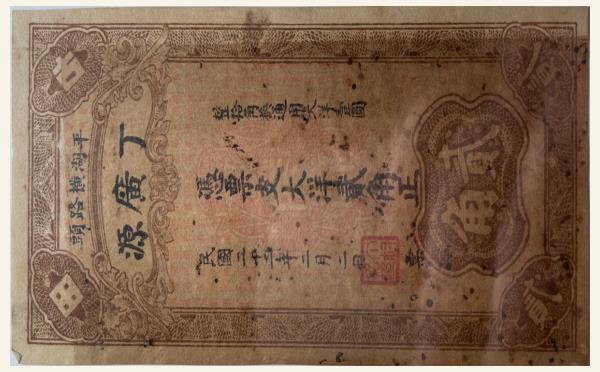 平湖橫路頭
丁廣源
拾角兌通用大洋壹圓
憑票支大洋貳角正
民國二十二年二月二日
票
貳角
貳